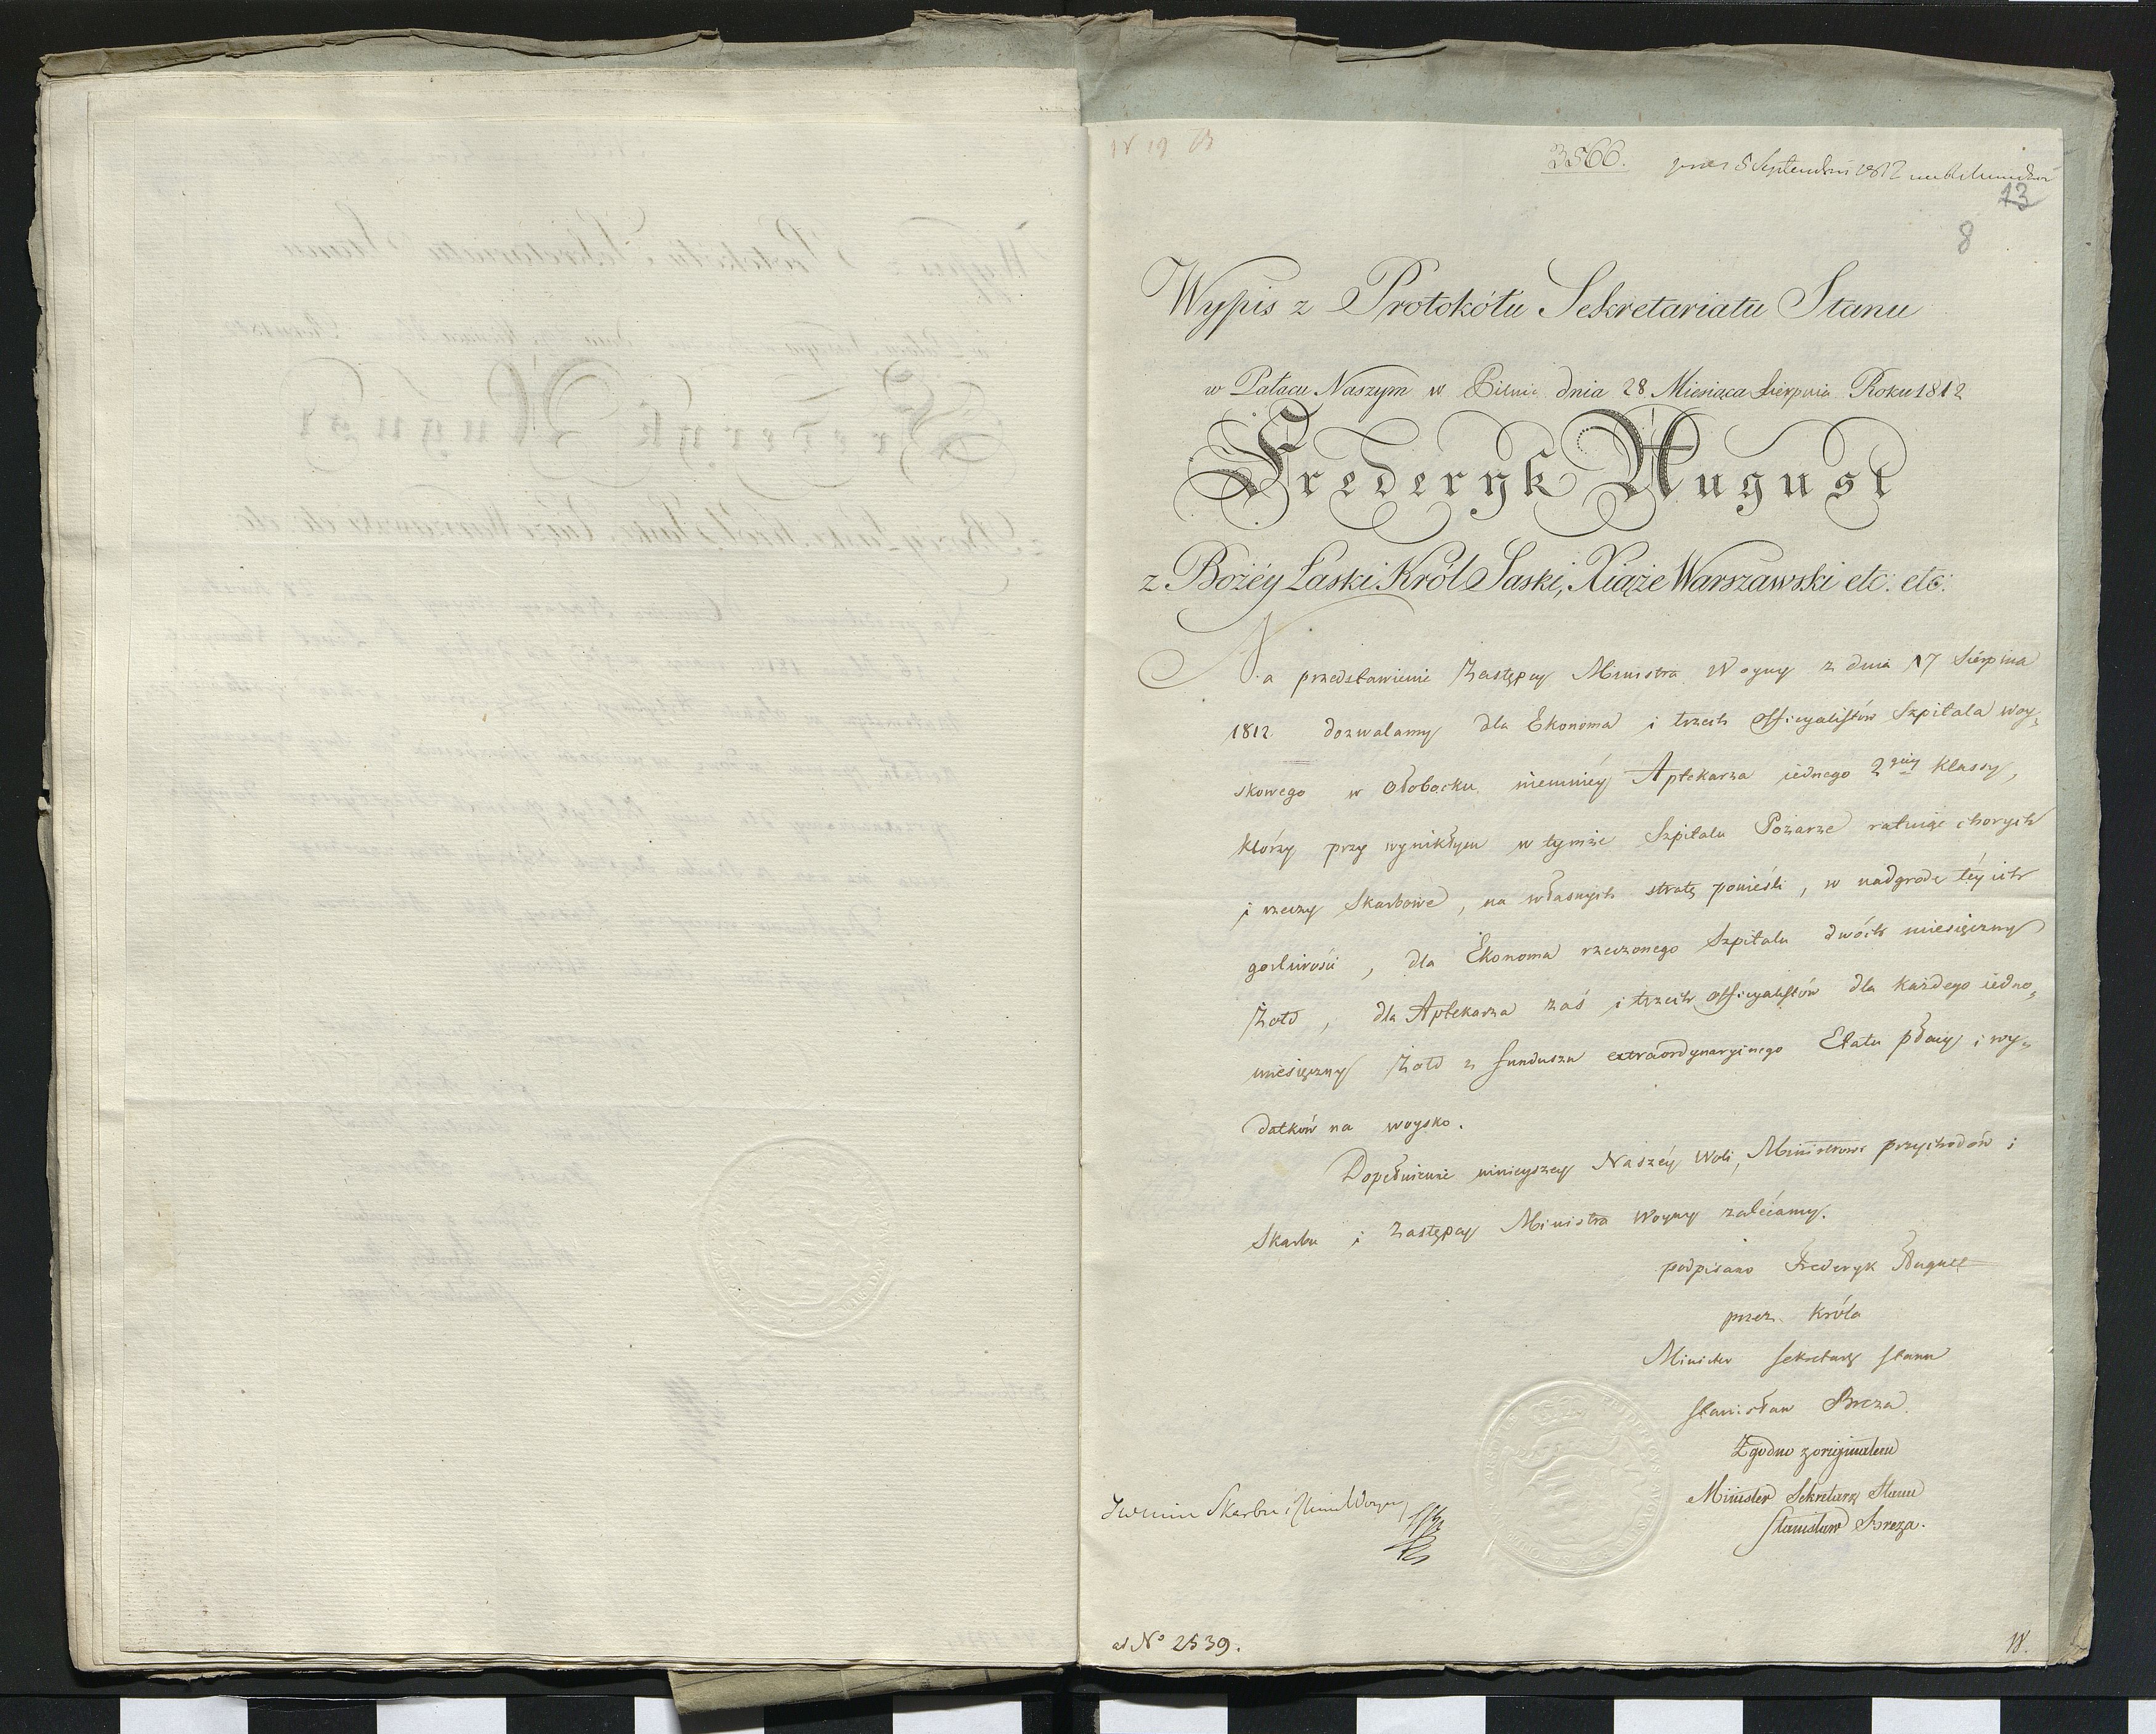 3566.
5 Septembris 1812
13
8
Wypis z Protokółu Sekretariatu Stanu
w Pałacu Naszym w Pilnic dnia 28 Miesiąca Sierpnia Roku 1812
Frederyk August
z Bożéy Łaski Król Saski, Xiąże Warszawski etc: etc:
Na przedstawienie Zastępcy Ministra Woyny z dnia 17 Sierpnia
1812 dozwalamy dla Ekonoma i trzech Officyalistów Szpitala woy„
skowego w Ołobocku niemniéy Aptekarza iednego 2giéy klassy,
którzy przy wynikłym w tymże Szpitalu Pożarze ratuiąc chorych
i rzeczy Skarbowe, na własnych stratę ponieśli, w nadgrodę téy ich
gorliwości, dla Ekonoma rzeczonego Szpitala dwóch miesięczny
Żołd, dla Aptekarza zaś i trzech Officyalistów dla każdego iedno„
miesięczny Żołd z funduszu extraordynaryinego Etatu płacy i wy„
datków na woysko.
Dopełnienie ninieyszey Naszéy Woli, Ministrowi przychodów i
Skarbu i Zastępcy Ministra Woyny zalécamy.
podpisano Frederyk August
przez Króla
Minister Sekretarz Stanu
Stanisław Breza.
Zgodno z originałem
Minister Sekretarz Stanu
Stanisław Breza.
Skarbu i Woyny
ad No 2539.